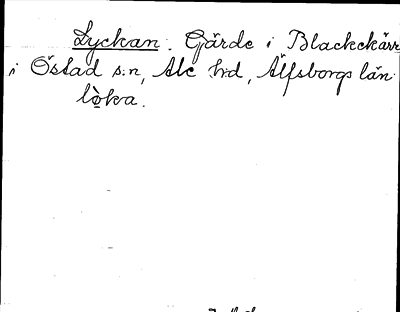 Lyckan. Gärde i Blackekärr
i Östad s:n, Ale h:d, Älfsborgs län.
lò̱ka.